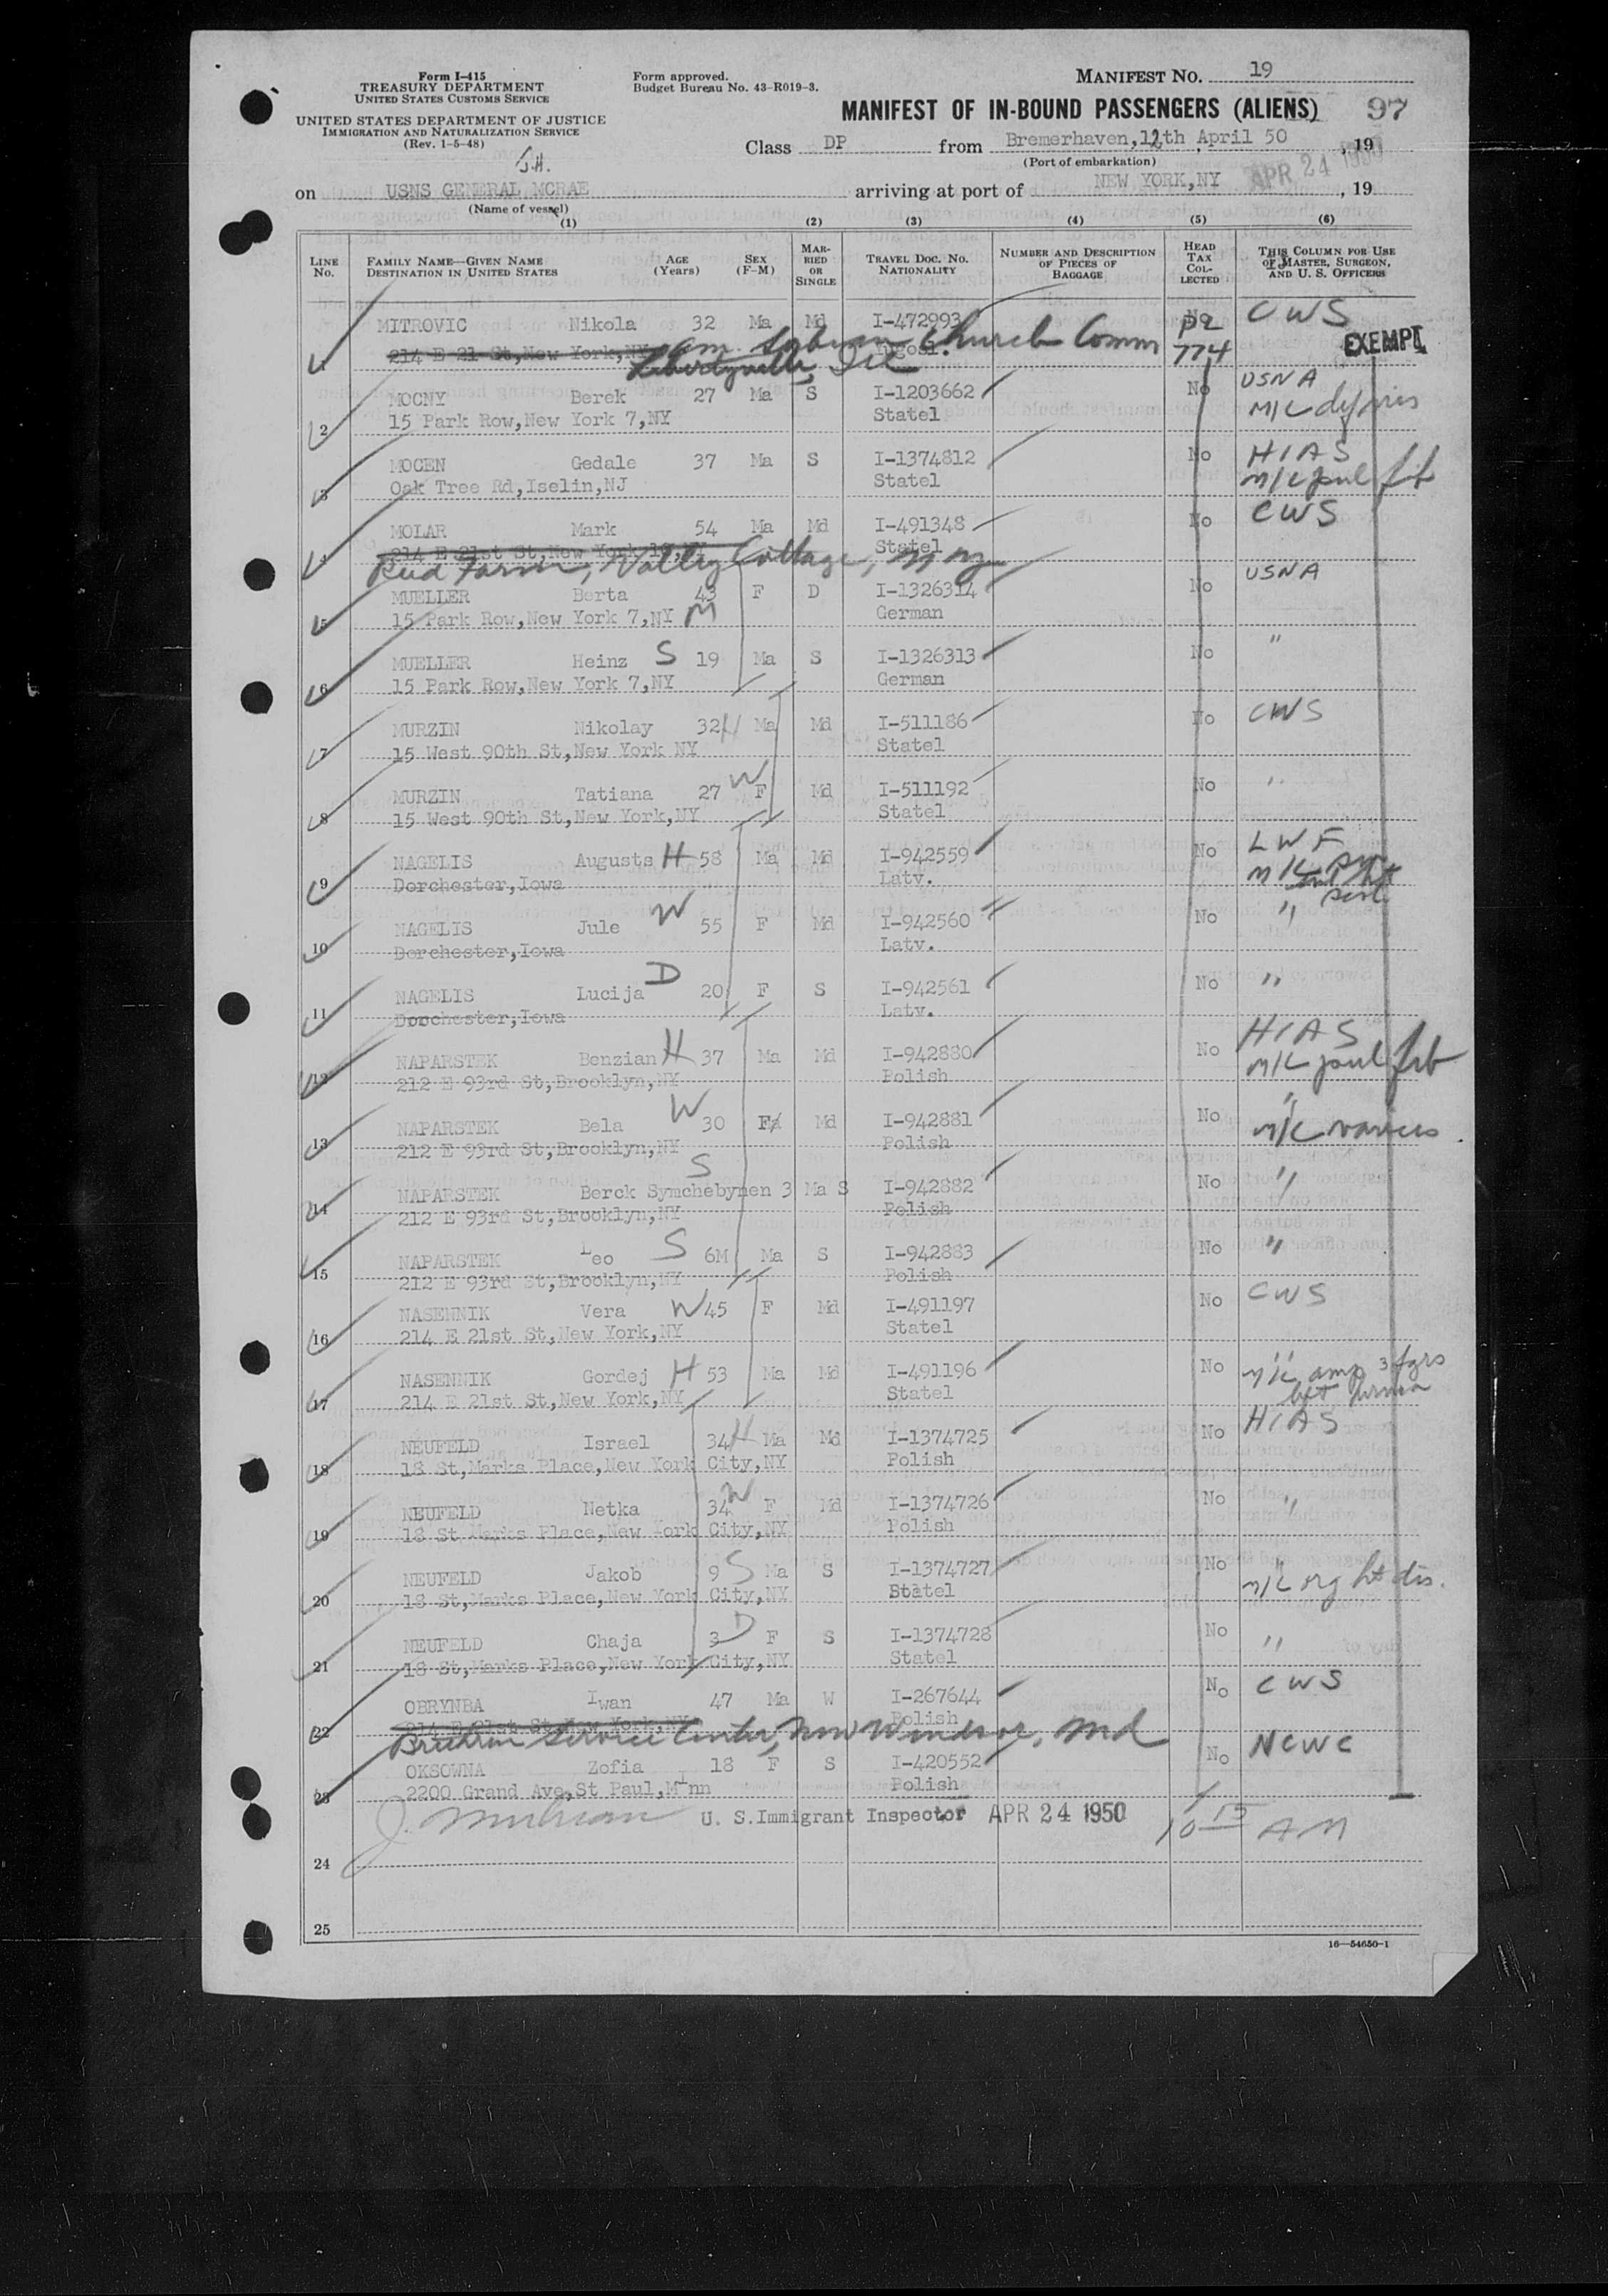 Form I-415
TREASURY DEPARTMENT
UNITED STATES CUSTOMS SERVICE
UNITED STATES DEPARTMENT OF JUSTICE
IMMIGRATION AND NATURALIZATION SERVICE
(Rev. 1-5-48)
Form approved.
Budget Bureau No. 43-R019-3.
MANIFEST NO. 19
MANIFEST OF IN-BOUND PASSENGERS (ALIENS) 97
Class DP from Bremerhaven,12th April 50, 19
(Port of embarkation)
J.H.
on USNS GENERAL MCRAE arriving at port of NEW YORK,NY APR 24 1950, 19
(Name of vessel)
(1) (2) (3) (4) (5) (6)
LINE No. FAMILY NAME—GIVEN NAME DESTINATION IN UNITED STATES AGE (Years) SEX (F-M) MARRIED OR SINGLE TRAVEL DOC. NO. NATIONALITY NUMBER AND DESCRIPTION OF PIECES OF BAGGAGE HEAD TAX COLLECTED THIS COLUMN FOR USE OF MASTER, SURGEON, AND U. S. OFFICERS
MITROVIC Nikola 32 Ma Md I-472993 No CWS
1 214 E 21 St,New York,NY Yugosl. 774 EXEMPT
Serbian Church Comm
Libertyville, Ill
MOCNY Berek 27 Ma S I-1203662 No USNA
2 15 Park Row,New York 7,NY Statel M/C
MOCEN Gedale 37 Ma S I-1374812 No HIAS
3 Oak Tree Rd,Iselin,NJ Statel M/C pul fib
MOLAR Mark 54 Ma Md I-491348 No CWS
4 214 E 21st St,New York 10,NY Statel
Reed Farm, Valley Cottage, N Y
MUELLER Berta 43 F D I-1326314 No USNA
5 15 Park Row,New York 7,NY M German
MUELLER Heinz S 19 Ma S I-1326313 No "
6 15 Park Row,New York 7,NY German
MURZIN Nikolay 32 H Ma Md I-511186 No CWS
7 15 West 90th St,New York NY Statel
MURZIN Tatiana 27 W F Md I-511192 No "
8 15 West 90th St,New York,NY Statel
NAGELIS Augusts H 58 Ma Md I-942559 No LWF
9 Dorchester,Iowa Latv. M/C
NAGELIS Jule W 55 F Md I-942560 No "
10 Dorchester,Iowa Latv.
NAGELIS Lucija D 20 F S I-942561 No "
11 Dorchester,Iowa Latv.
NAPARSTEK Benzian H 37 Ma Md I-942880 No HIAS
12 212 E 93rd St,Brooklyn,NY Polish M/C pul fib
NAPARSTEK Bela W 30 F Md I-942881 No "
13 212 E 93rd St,Brooklyn,NY Polish M/C
NAPARSTEK Berck Symchebynen S 3 Ma S I-942882 No "
14 212 E 93rd St,Brooklyn,NY Polish
NAPARSTEK Leo S 6M Ma S I-942883 No "
15 212 E 93rd St,Brooklyn,NY Polish
NASENNIK Vera W 45 F Md I-491197 No CWS
16 214 E 21st St,New York,NY Statel
NASENNIK Gordej H 53 Ma Md I-491196 No "
17 214 E 21st St,New York,NY Statel M/C amp 3 fgrs
NEUFELD Israel 34 H Ma Md I-1374725 No HIAS
18 18 St,Marks Place,New York City,NY Polish
NEUFELD Netka 34 W F Md I-1374726 No "
19 18 St Marks Place,New York City,NY Polish
NEUFELD Jakob 9 S Ma S I-1374727 No "
20 18 St,Marks Place,New York City,NY Statel M/C org ht dis.
NEUFELD Chaja 3 D F S I-1374728 No "
21 18 St,Marks Place,New York City,NY Statel
OBRYNBA Iwan 47 Ma W I-267644 No CWS
22 214 E 21st St,New York,NY Polish
Brethren Service Center, New Windsor, Md
OKSOWNA Zofia 18 F S I-420552 No NCWC
23 2200 Grand Ave,St Paul,Minn Polish
U. S.Immigrant Inspector APR 24 1950 10 15 AM
24
25
16—54650-1